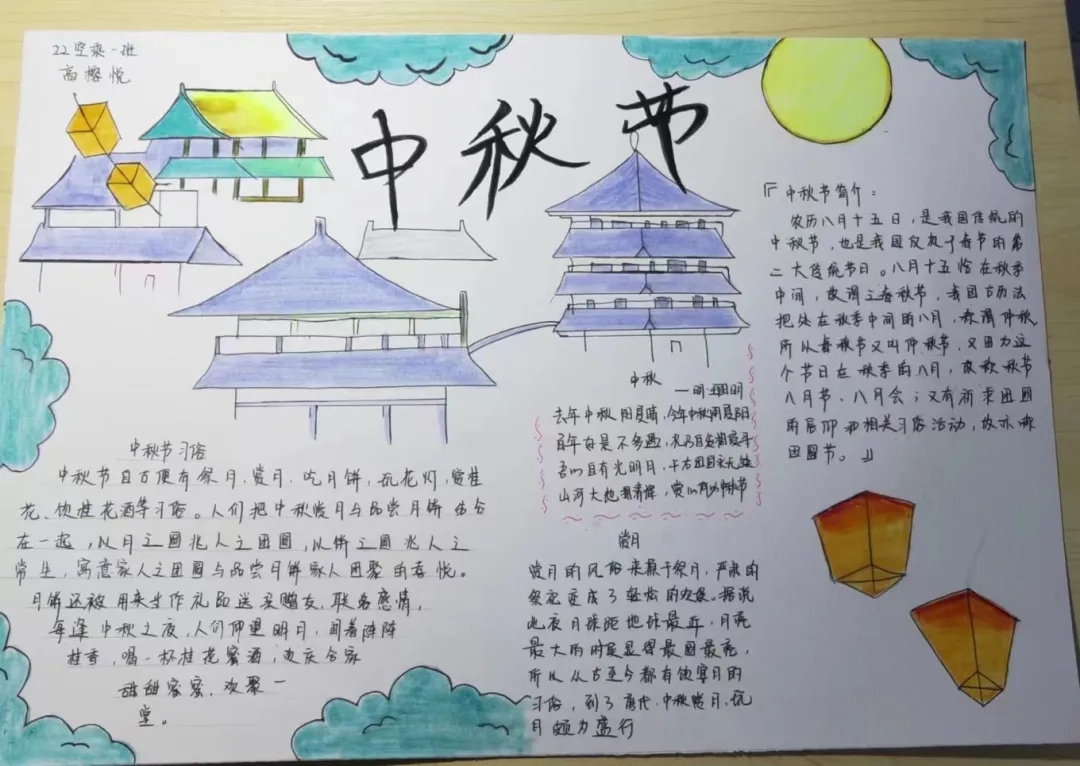 22空乘一班
高榕悦
中秋节
『中秋节简介:
农历八月十五日,是我国传统的
中秋节,也是我国仅次于春节的第
二大传统节日。八月十五恰在秋季
中间,故谓之春秋节,我国古历法
把处在秋季中间的八月,称谓仲秋
所以春秋节又叫仲秋节,又因为这
个节日在秋季的八月,故称秋节
八月节、八月会;又有祈求团圆
的信仰和相关习俗活动,故亦称
团圆节。』
中秋节习俗
中秋节自古便有祭月、赏月、吃月饼,玩花灯,赏桂
花、饮桂花酒等习俗。人们把中秋赏月与品尝月饼结合
在一起,以月之圆兆人之团圆,以饼之圆兆人之
常生,寓意家人之团圆与品尝月饼家人团聚的喜悦。
月饼还被用来当作礼品送亲赠友,联络感情,
每逢中秋之夜,人们仰望明月,闻着阵阵
桂香,喝一杯桂花蜜酒,欢庆合家
甜甜蜜蜜,欢聚一
堂。
中秋
去年中秋阴复晴,今年中秋阴复阴
百年好是不多遇,
吾心自有光明月,千古团圆永无缺
山河大地拥清辉,赏心何必中秋节
赏月
赏月的风俗来源于祭月,严肃的
祭祀变成了轻松的欢娱。据说
此夜月球距地球最近,月亮
最大的时候显得最圆最亮,
所以从古至今都有饮宴赏月的
习俗,到了唐代,中秋赏月、玩
月颇为盛行